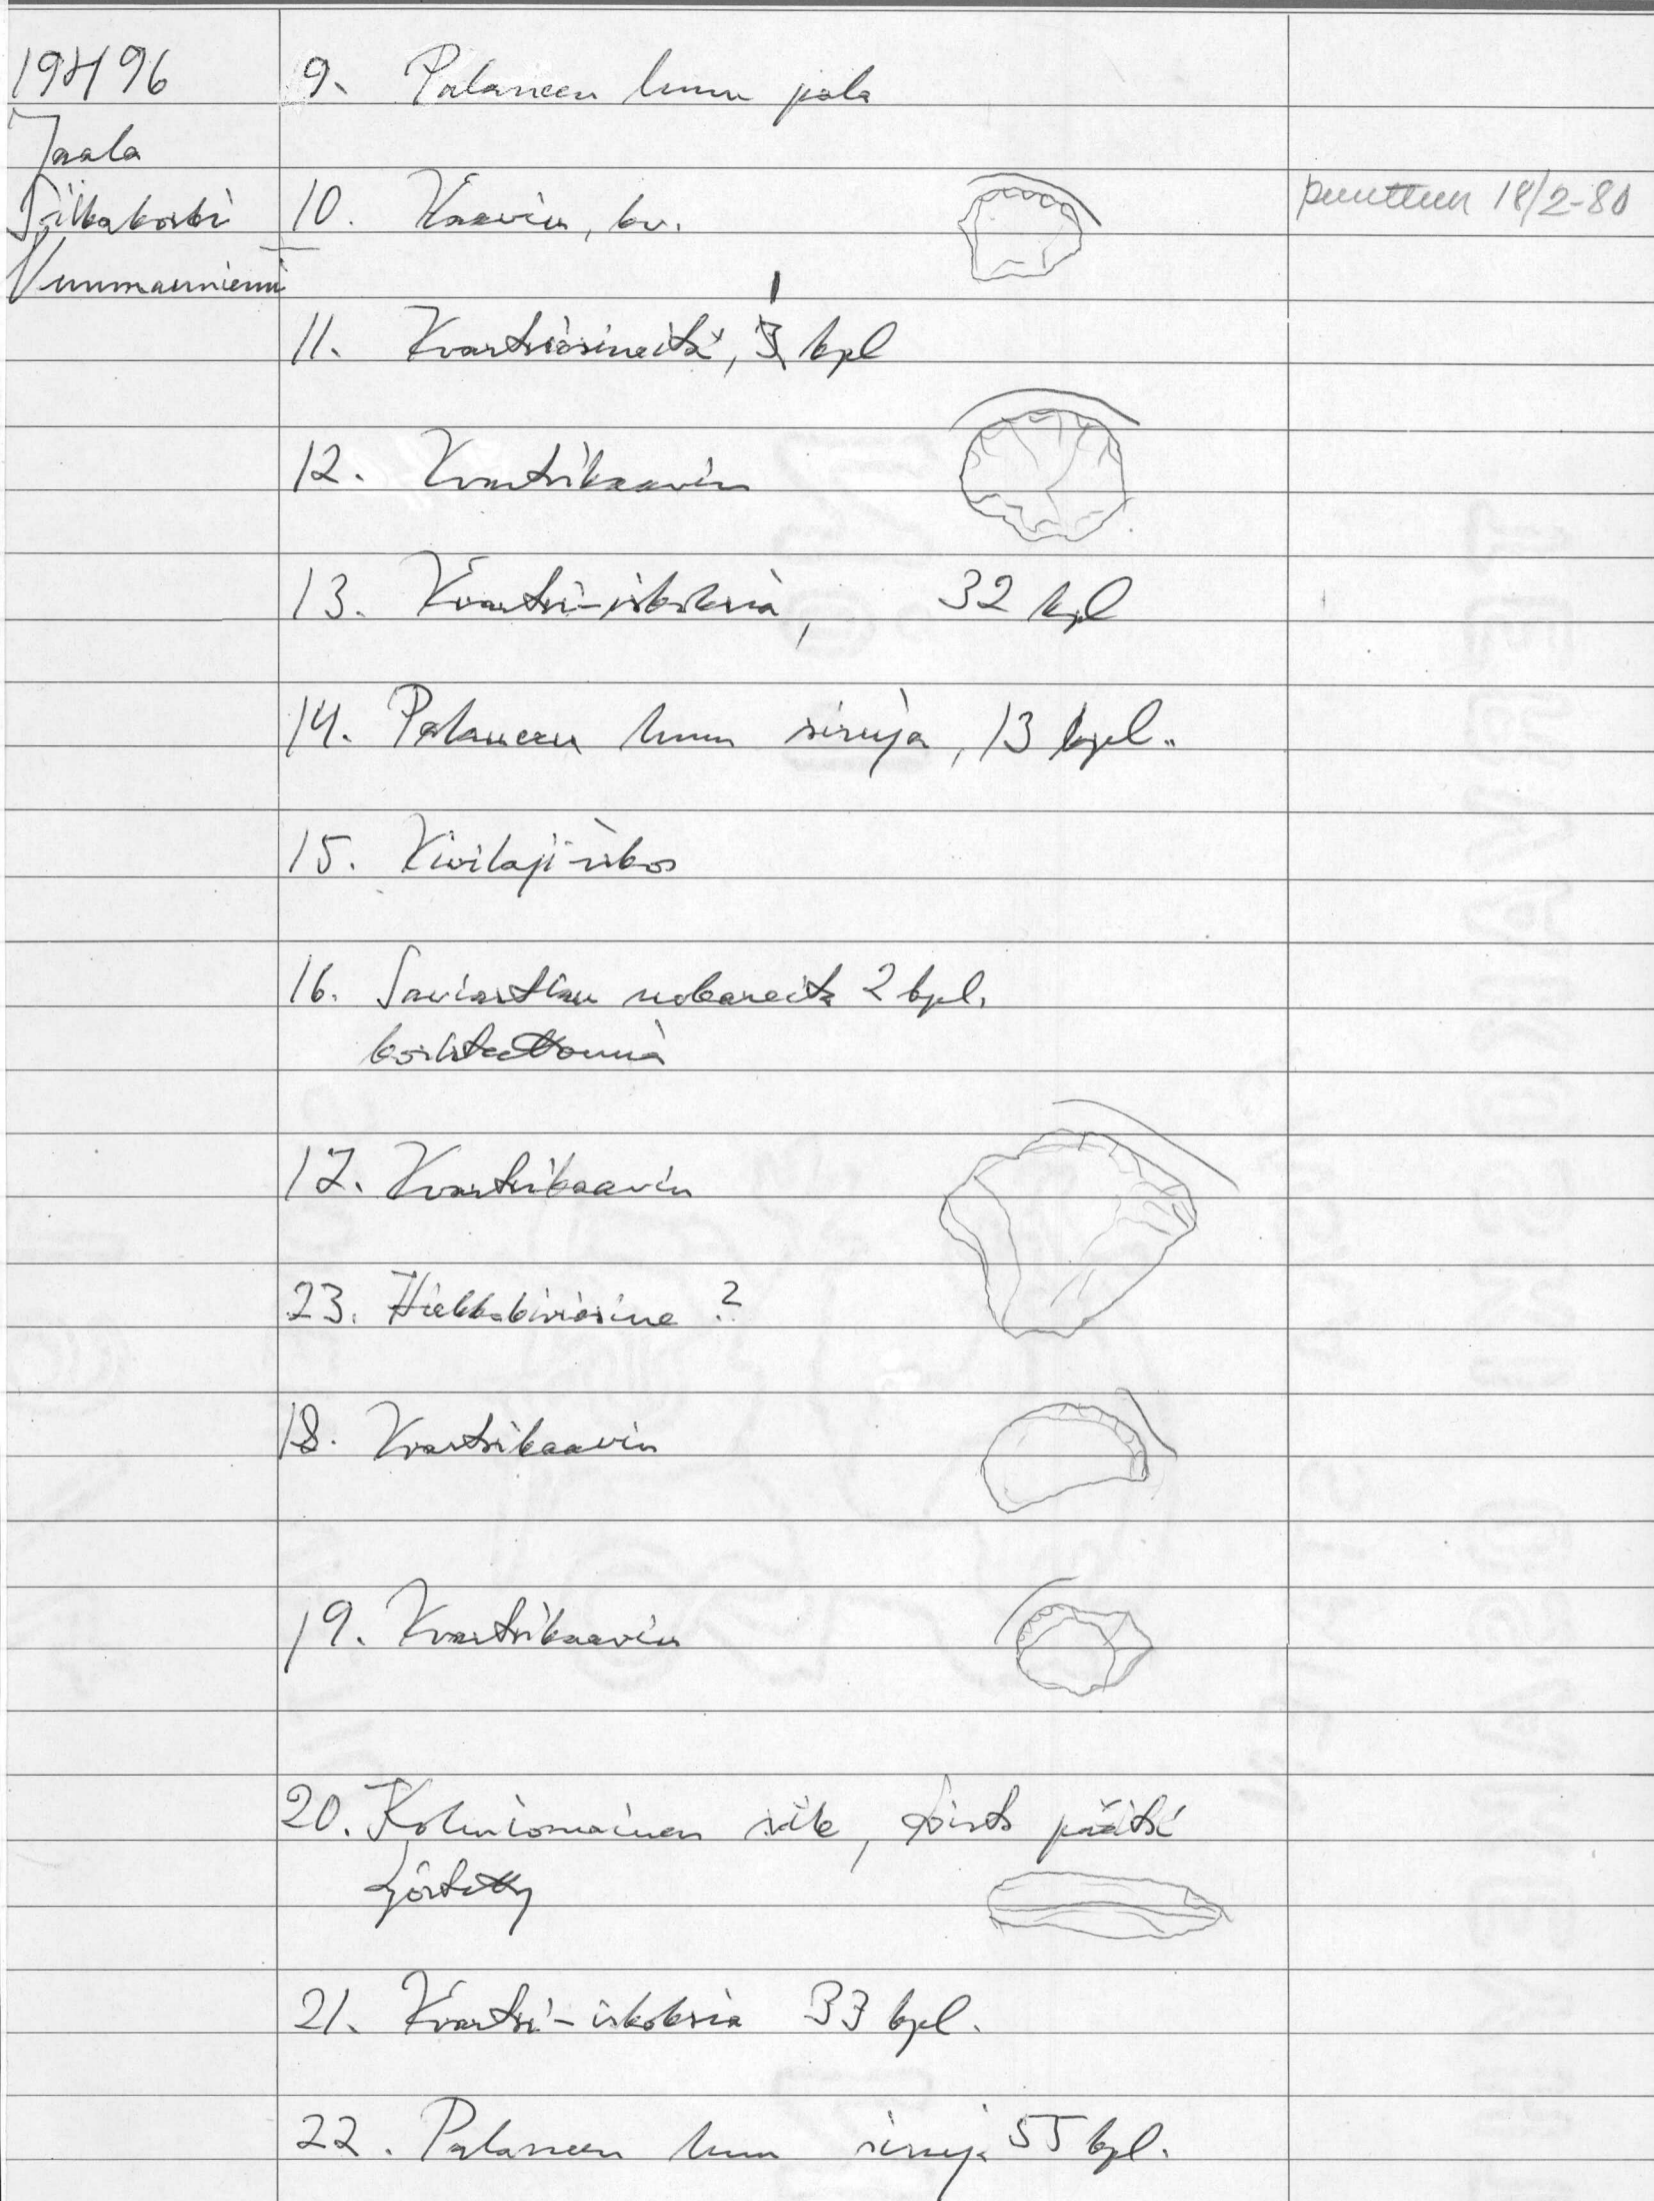 19496
Jaala
Siikakoski
Nummanniemi
9. Palaneen luun pala
10. Kaavin, kv.
puuttuu 18/2-80
1
11. Kvartsiesineitä, 3 kpl
12. Kvartsikaavin
13. Kvartsi-iskoksia, 32 kpl
14. Palaneen luun siruja, 13 kpl.
15. Kivilaji-iskos
16. Saviastian nokareita 2 kpl.
koristeettomia
17. Kvartsikaavin
23. Hiekkakiviesine ?
18. Kvartsikaavin
19. Kvartsikaavin
20. Kolmiomainen säle, toista päätä
työstetty
21. Kvartsi-iskoksia 33 kpl.
22. Palaneen luun siruja 55 kpl.